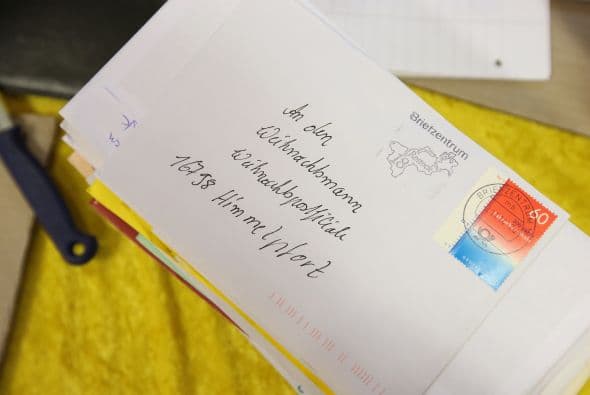 An den
Weihnachtsmann
Weihnachtspostfiliale
16798 Himmelpfort
Briefzentrum
18
60